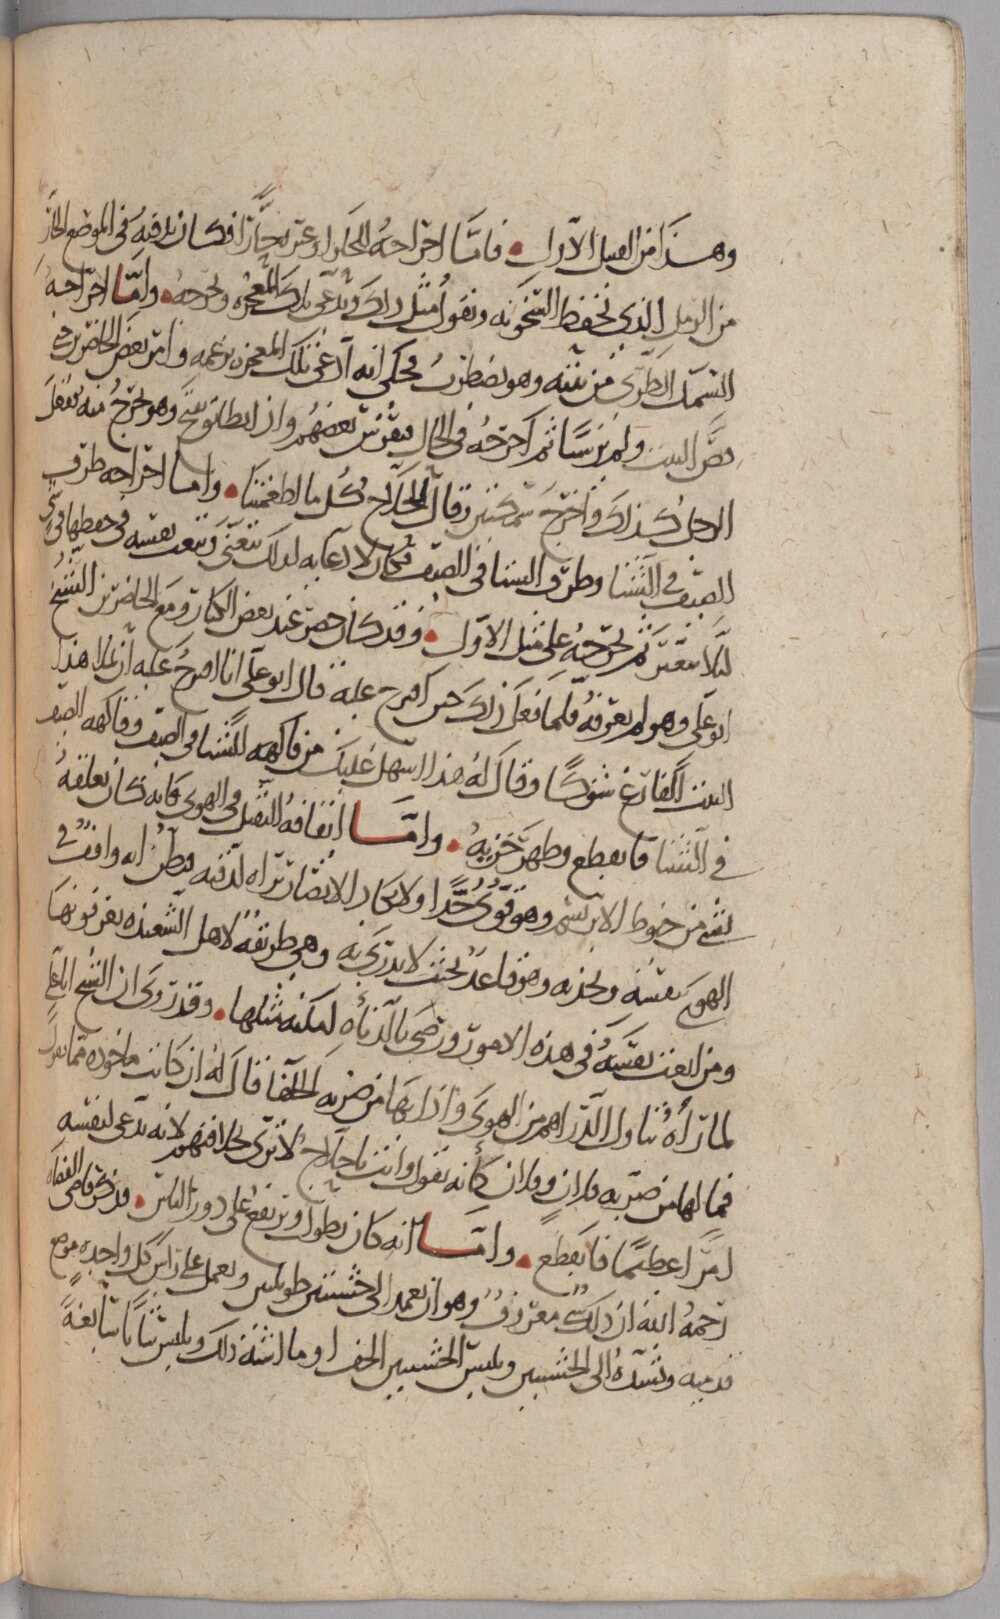 وهذا من القبيل الاول • فاما اخراجه الحار او غير الحار فكان يدفنه في الموضع الحار
من الرمل الذي تحفظ السخونه ونقول مثل ذلك وتدعى بذلك المعجزه ويخرجه • واما اخراجه
السمك الطري من بيته وهو يضطرب فحكى انه ادعى تلك المعجزه بزعمه وامر بعض الحاضرين
البيت ولم ير شيئا ثم اخرجه في الحال بعضهم وان وهو يخرج منه ففعل
الرجل كذلك واخرج سمكتين وقال الحلاج كل ما اطعمتنا • واما اخراجه طرف
الصيف في الشتا وطرف الشتا في الصيف فكان لادعائه لذلك يتعنى ويتعب نفسه في حفظها
لئلا يتغير ثم يخرجه على مثل الاول • وقد كان حضر عند بعض الكبار ومع الحاضرين الشيخ
ابو علي وهو لم يعرفه فلما فعل ذلك حين اقترح عليه قال ابو علي انا اقترح عليه ان يملا هذا
البيت الفارغ شوكا وقال له هذا اسهل عليك من فاكهه الشتا في الصيف وفاكهه الصيف
في الشتا فانقطع وظهر خزيه • واما ايقافه الثقيل في الهوى فانه كان يعلقه
بشي من خيوط الابريسم وهو قوي جدا ولا تكاد الابصار تراه لدقته فيظن انه واقف في
الهوى بنفسه ويجذبه وهو قاعد بحيث لا يدرى به وهي طريقه لاهل الشعبذه يعرفونها
ومن اتعب نفسه في هذه الامور ورضي بالدناه امكنه مثلها • وقد روى ان الشيخ ابا علي
لما راه تناول الدراهم من الهوى واذا بها من ضرب الخلفا قال له ان كانت ماخوذه مما تقول
فما لها من ضرب فلان وفلان كانه تقول وانت يا حلاج لا ترى لانه تدعى لنفسه
امرا عظيما فانقطع • واما انه كان يطول ويرتفع على دور الناس • فذكر قاضي القضاه
رحمه الله ان ذلك شي معروف وهو ان يعمد الى خشبتين طويلتين ويعمل على راس كل واحده موضع
قدميه ويشده الى الخشبتين ويلبس الخشبتين الخف او ما اشبه ذلك ويلبس ثيابا سابغة